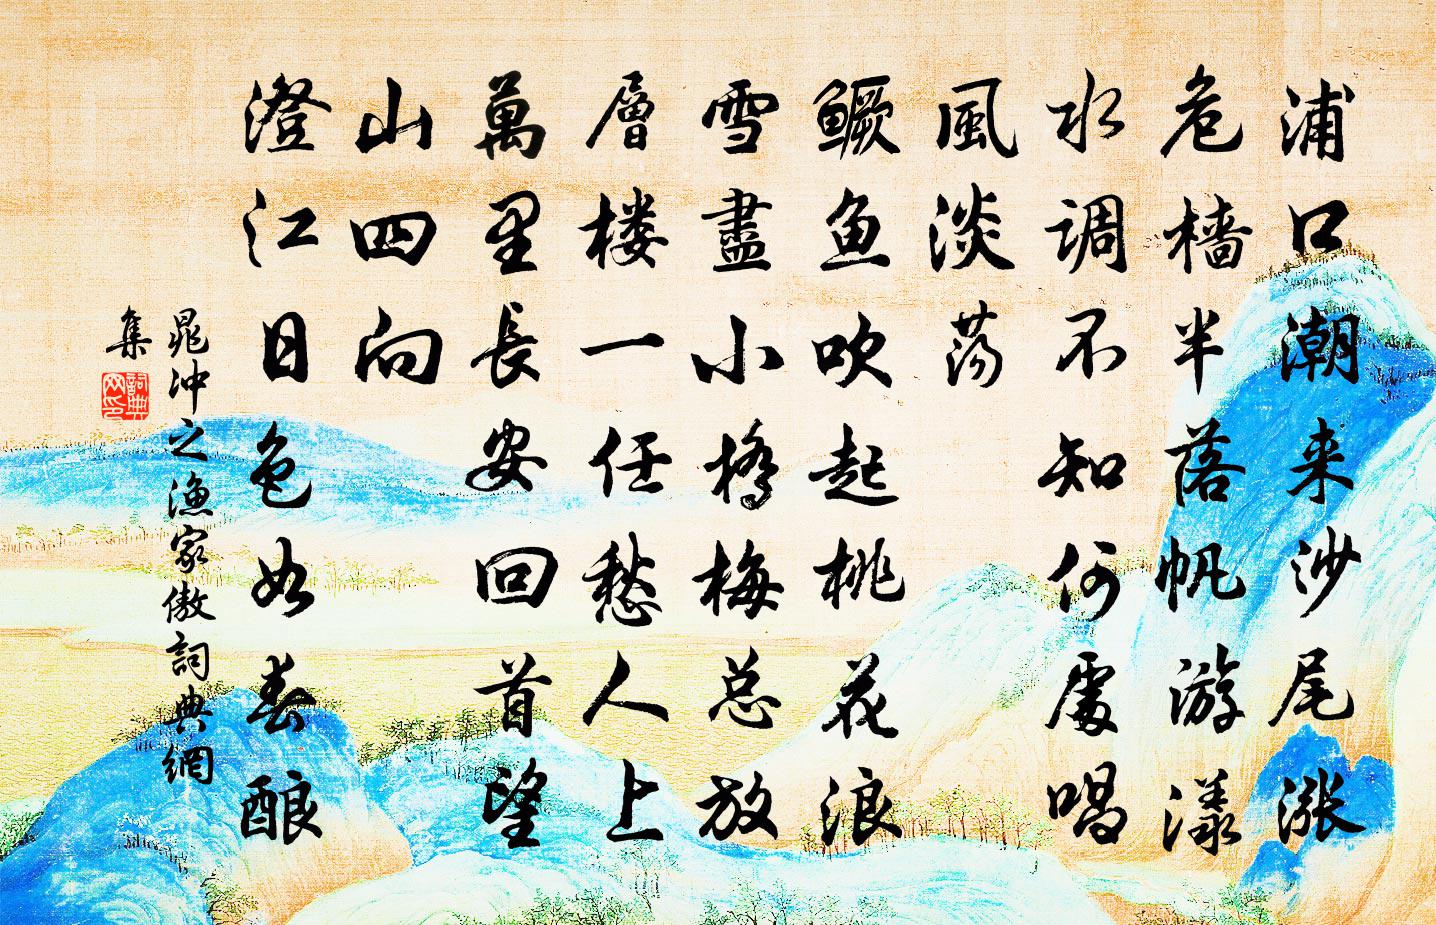 浦口潮来沙尾涨
危樯半落帆游漾
水调不知何處唱
風淡荡
鳜鱼吹起桃花浪
雪盡小橋梅总放
層楼一任愁人上
萬里長安回首望
山四向
澄江日色如春酿
晁冲之渔家傲詞典網
集
詞典网印